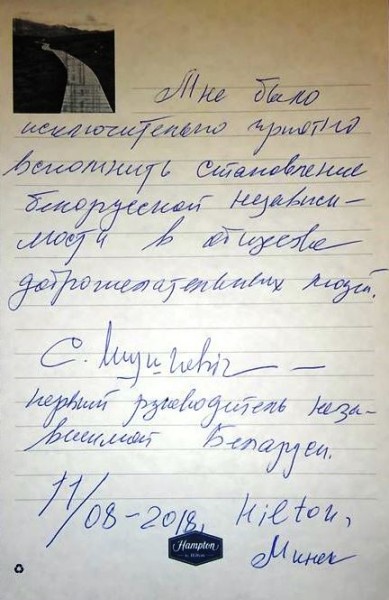 Мне было
исключительно приятно
вспомнить становление
белорусской независи-
мости в обществе
доброжелательных людей.
С. Шушкевіч —
первый руководитель неза-
висимой Беларуси.
11/08-2018, Hilton,
Hampton
by Hilton
Минск